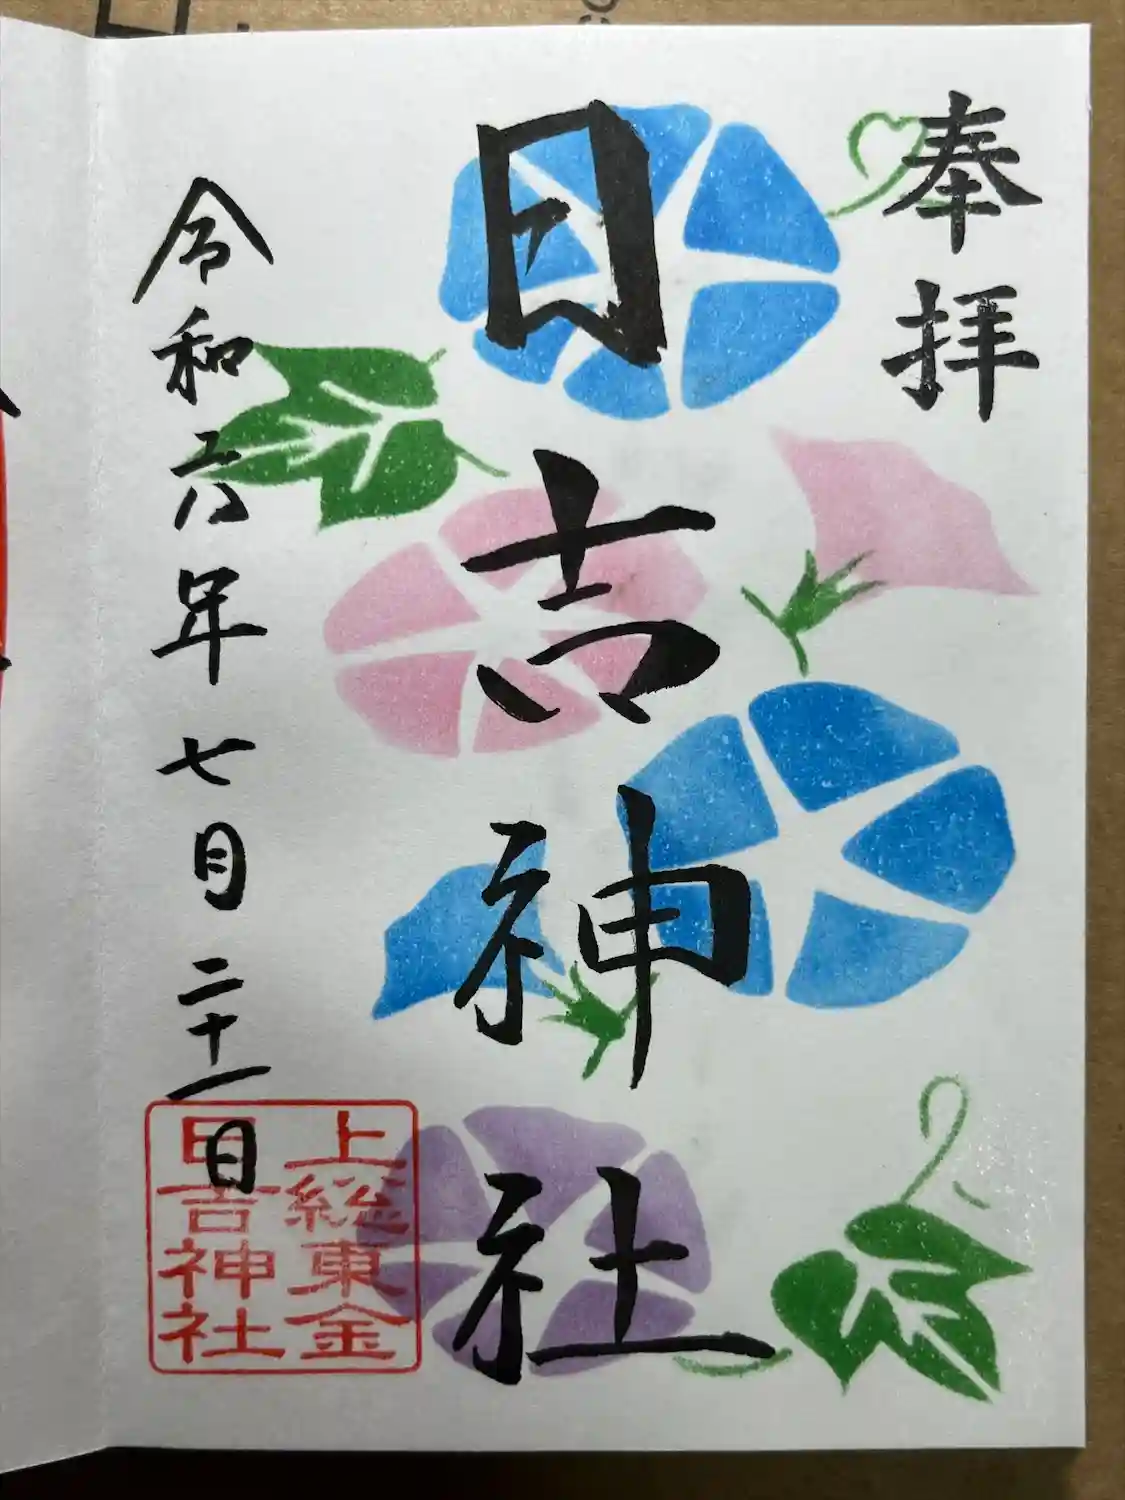 奉拝
日吉神社
令和六年七月二十一日
上総東金
日吉神社